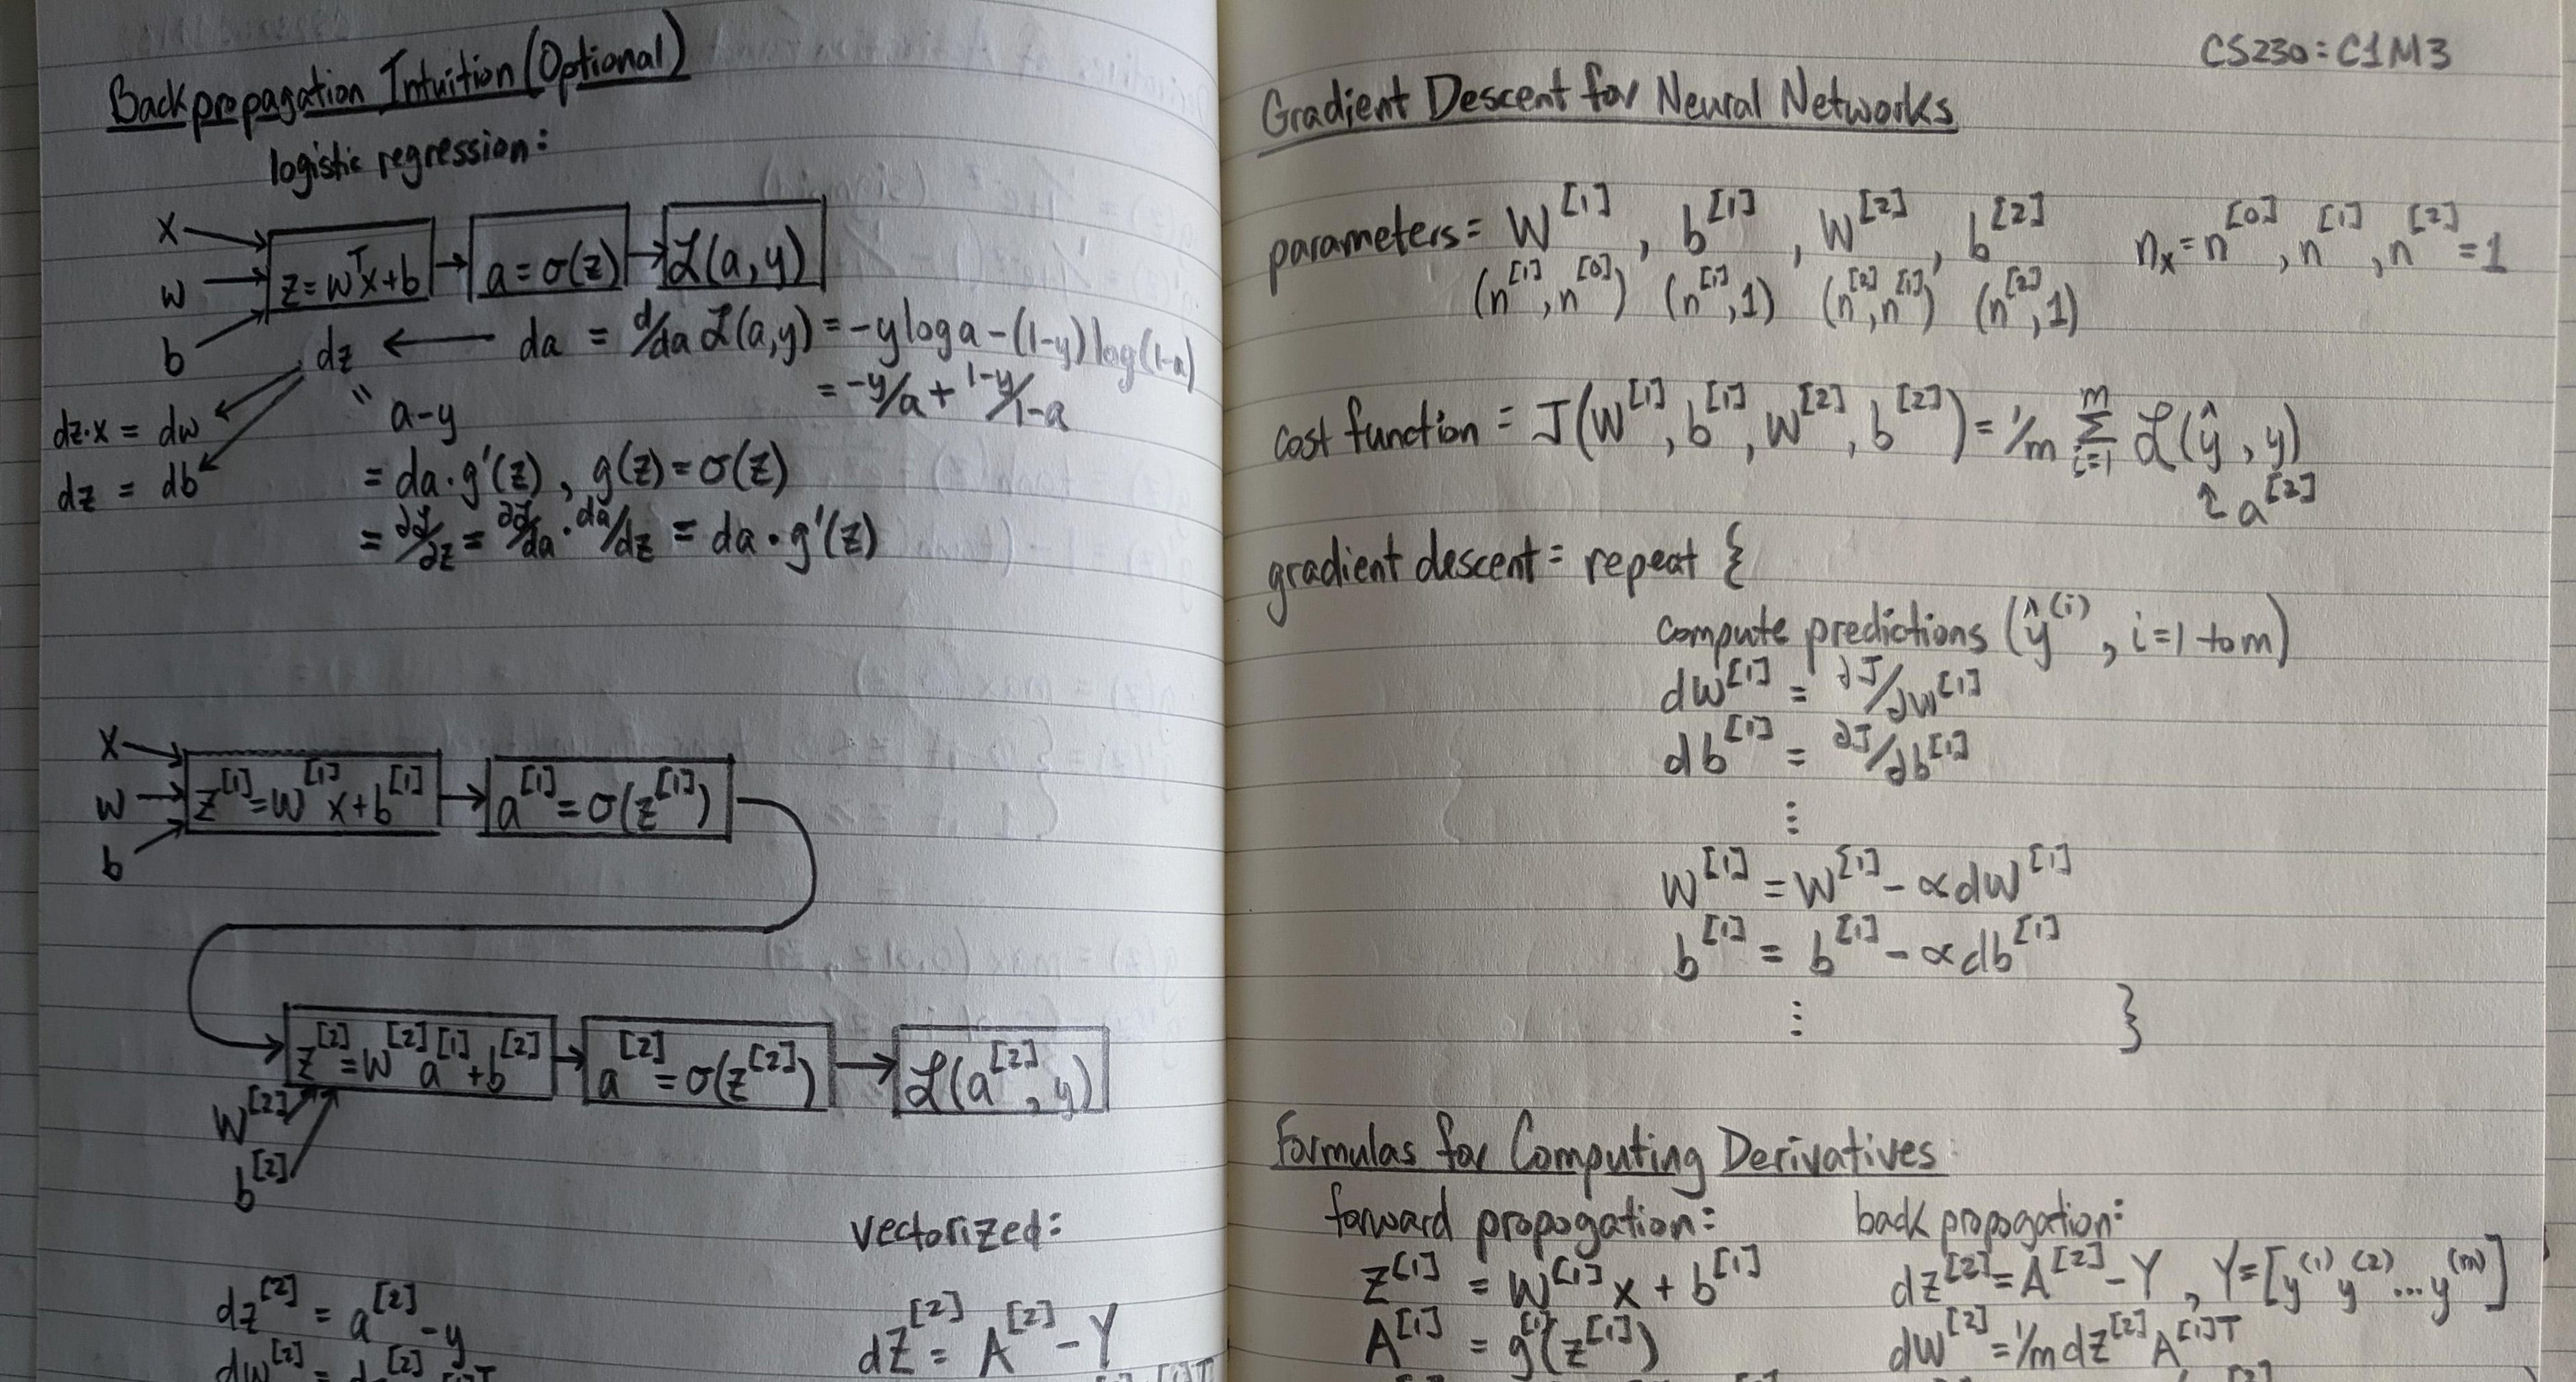 Backpropagation Intuition (Optional)
logistic regression:
x
w
b
z = wᵀx + b
a = σ(z)
ℒ(a, y)
dz ← da = d/da ℒ(a,y) = -y log a - (1-y) log(1-a)
= -y/a + 1-y/1-a
" a-y
dz·x = dw
dz = db
= da · g'(z), g(z) = σ(z)
= ∂ℒ/∂z = ∂ℒ/da · da/dz = da · g'(z)
x
w
b
z^[1] = w^[1] x + b^[1]
a^[1] = σ(z^[1])
z^[2] = w^[2] a^[1] + b^[2]
a^[2] = σ(z^[2])
ℒ(a^[2], y)
W^[2]
b^[2]
vectorized:
dz^[2] = a^[2] - y
dZ^[2] = A^[2] - Y
CS230: C1M3
Gradient Descent for Neural Networks
parameters: W^[1], b^[1], W^[2], b^[2] n_x = n^[0], n^[1], n^[2] = 1
(n^[1], n^[0]) (n^[1], 1) (n^[2], n^[1]) (n^[2], 1)
cost function: J(W^[1], b^[1], W^[2], b^[2]) = 1/m Σ_{i=1}^{m} ℒ(ŷ, y)
a^[2]
gradient descent: repeat {
compute predictions (ŷ^(i), i=1 to m)
dw^[1] = ∂J/∂w^[1]
db^[1] = ∂J/∂b^[1]
⋮
W^[1] = W^[1] - αdW^[1]
b^[1] = b^[1] - αdb^[1]
⋮ }
Formulas for Computing Derivatives:
forward propogation:
Z^[1] = W^[1] x + b^[1]
A^[1] = g^[1](z^[1])
back propogation:
dz^[2] = A^[2] - Y, Y = [y^(1) y^(2) ... y^(m)]
dW^[2] = 1/m dz^[2] A^[1]T